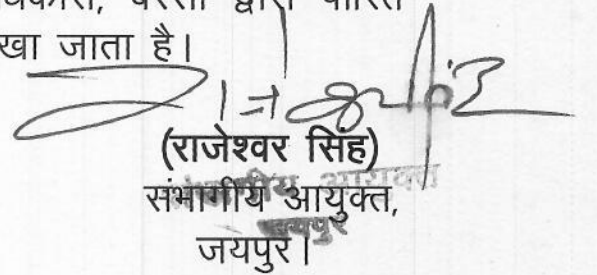 द्वारा पारित
खा जाता है।
(राजेश्वर सिंह)
संभागीय आयुक्त,
जयपुर।